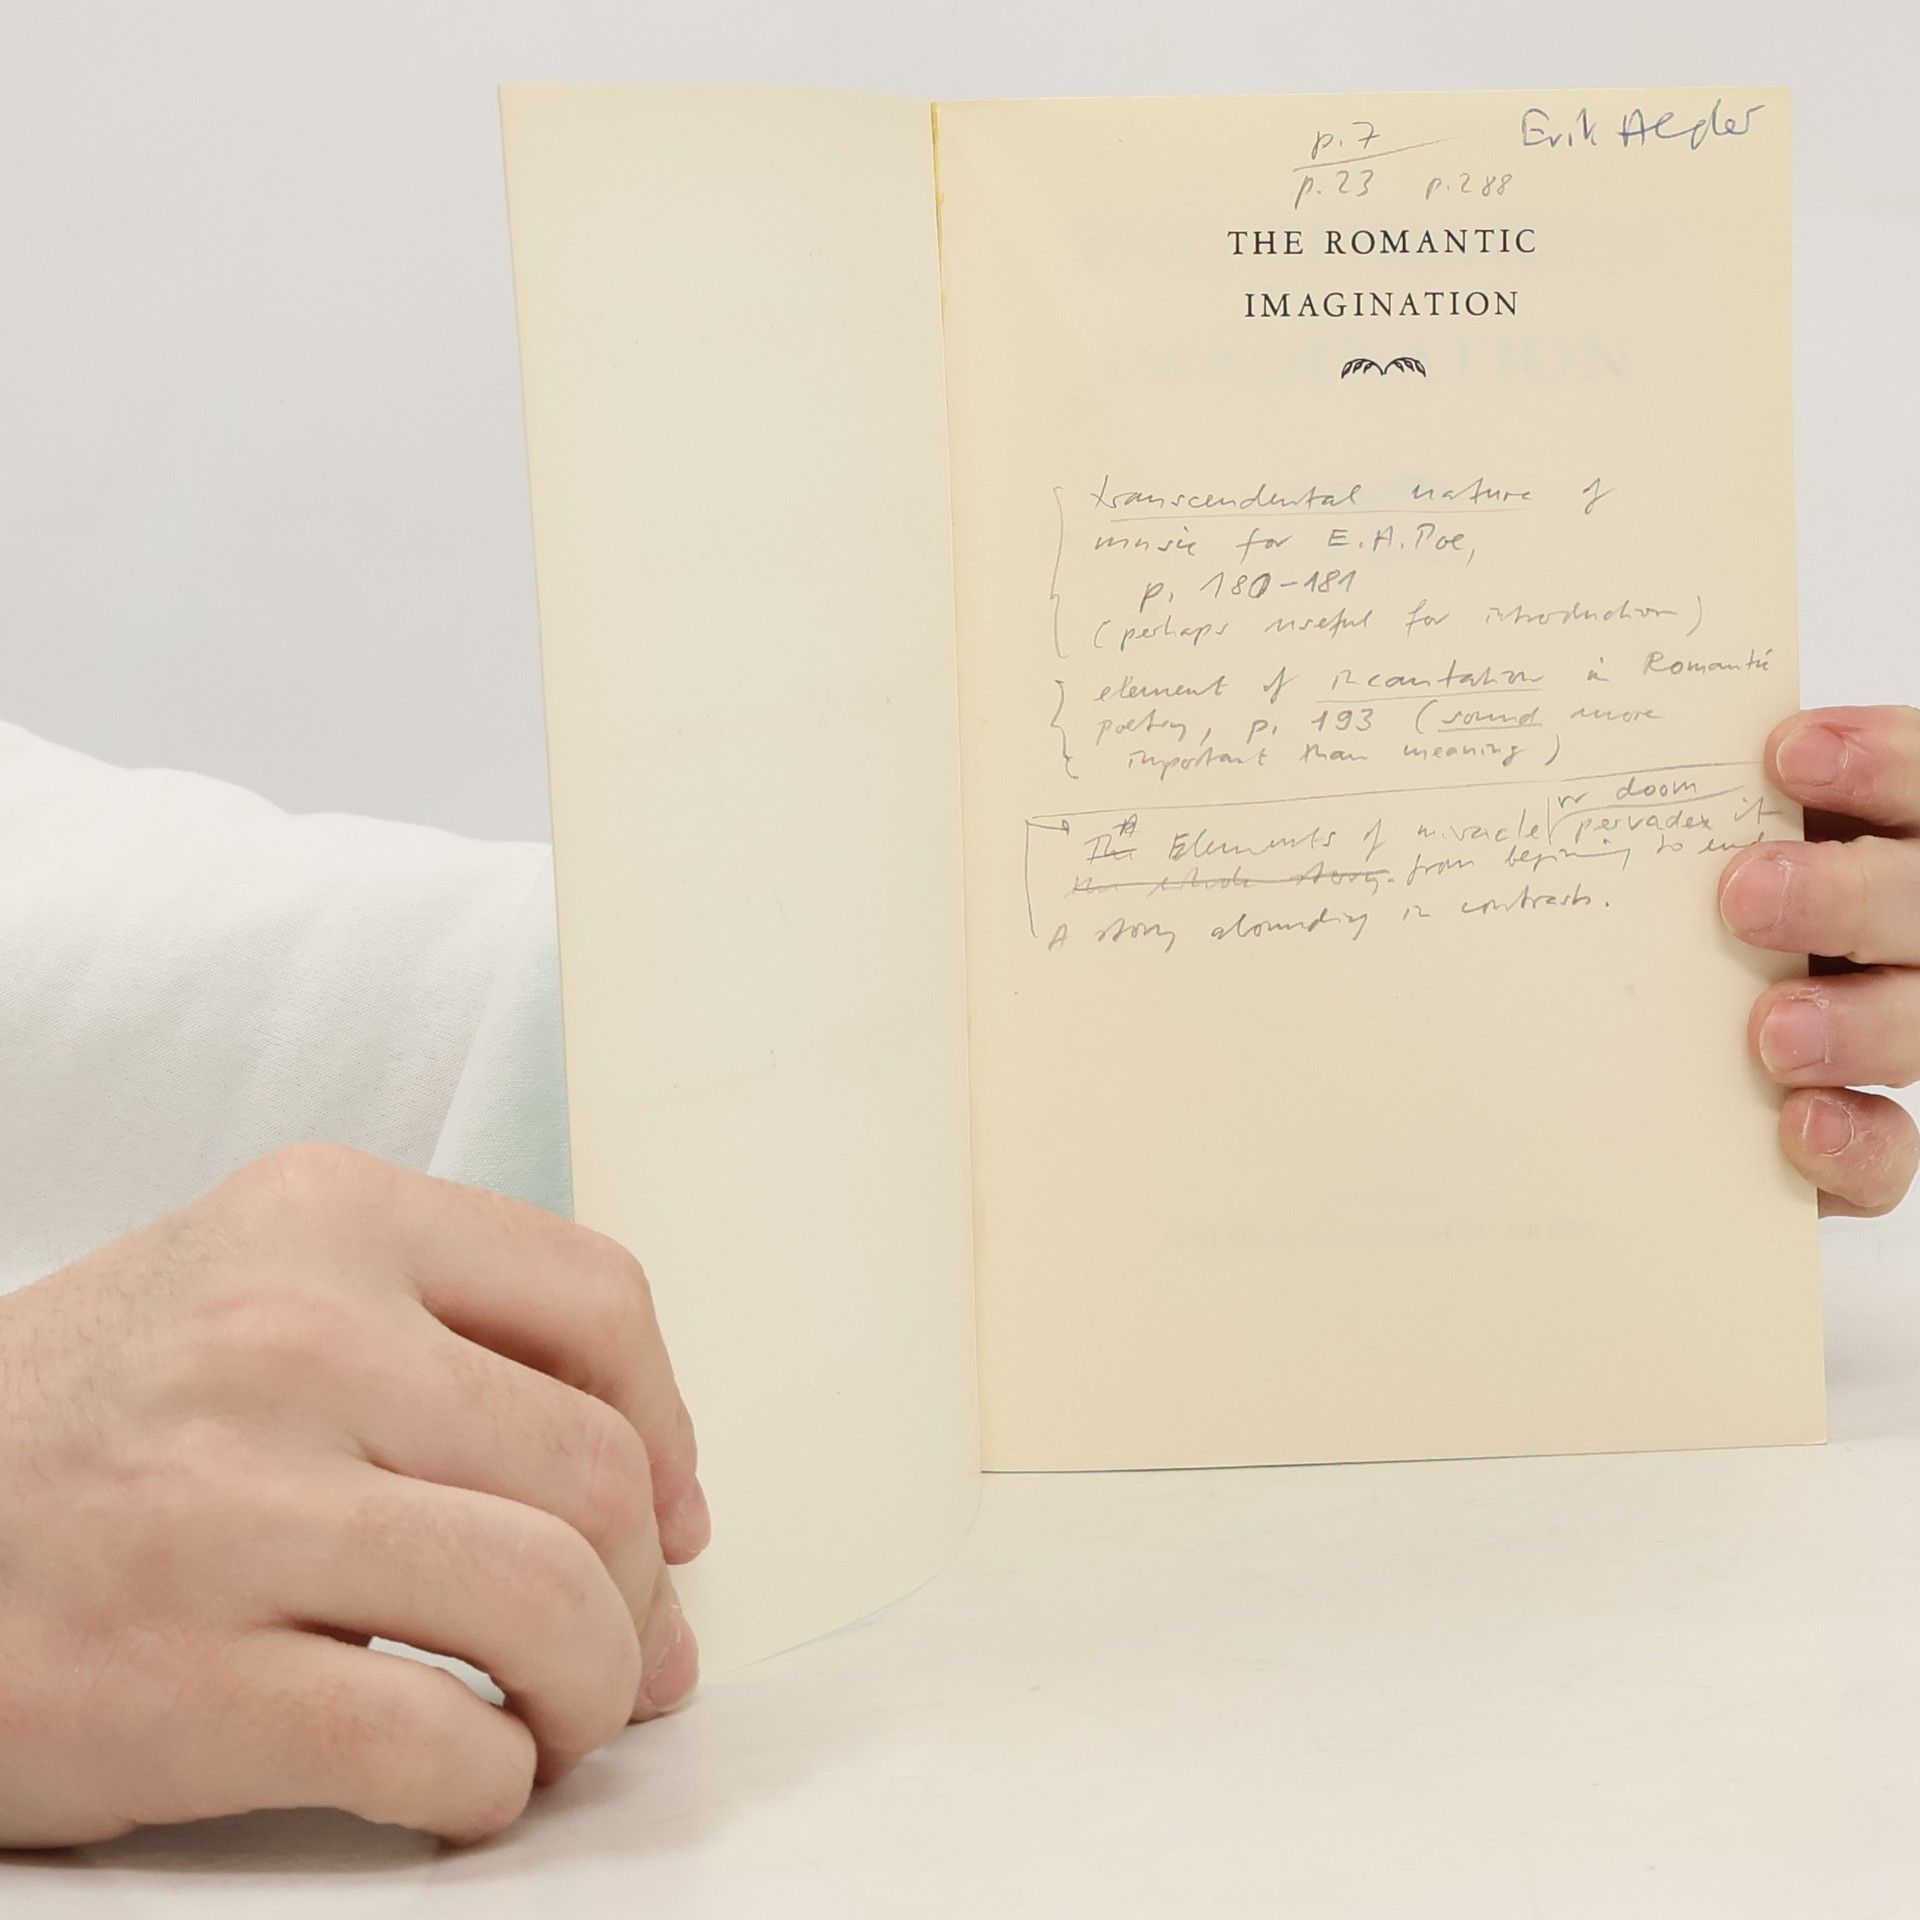 p. 7
Erik
p. 23 p. 288
THE ROMANTIC
IMAGINATION
transcendental nature of
music for E.A. Poe,
p. 180-181
(perhaps useful for introduction)
element of incantation in Romantic
poetry, p. 193 (sound more
important than meaning)
doom
The A Elements of miracle pervades it
the whole story. from begining to end
A story abounding in contrasts.